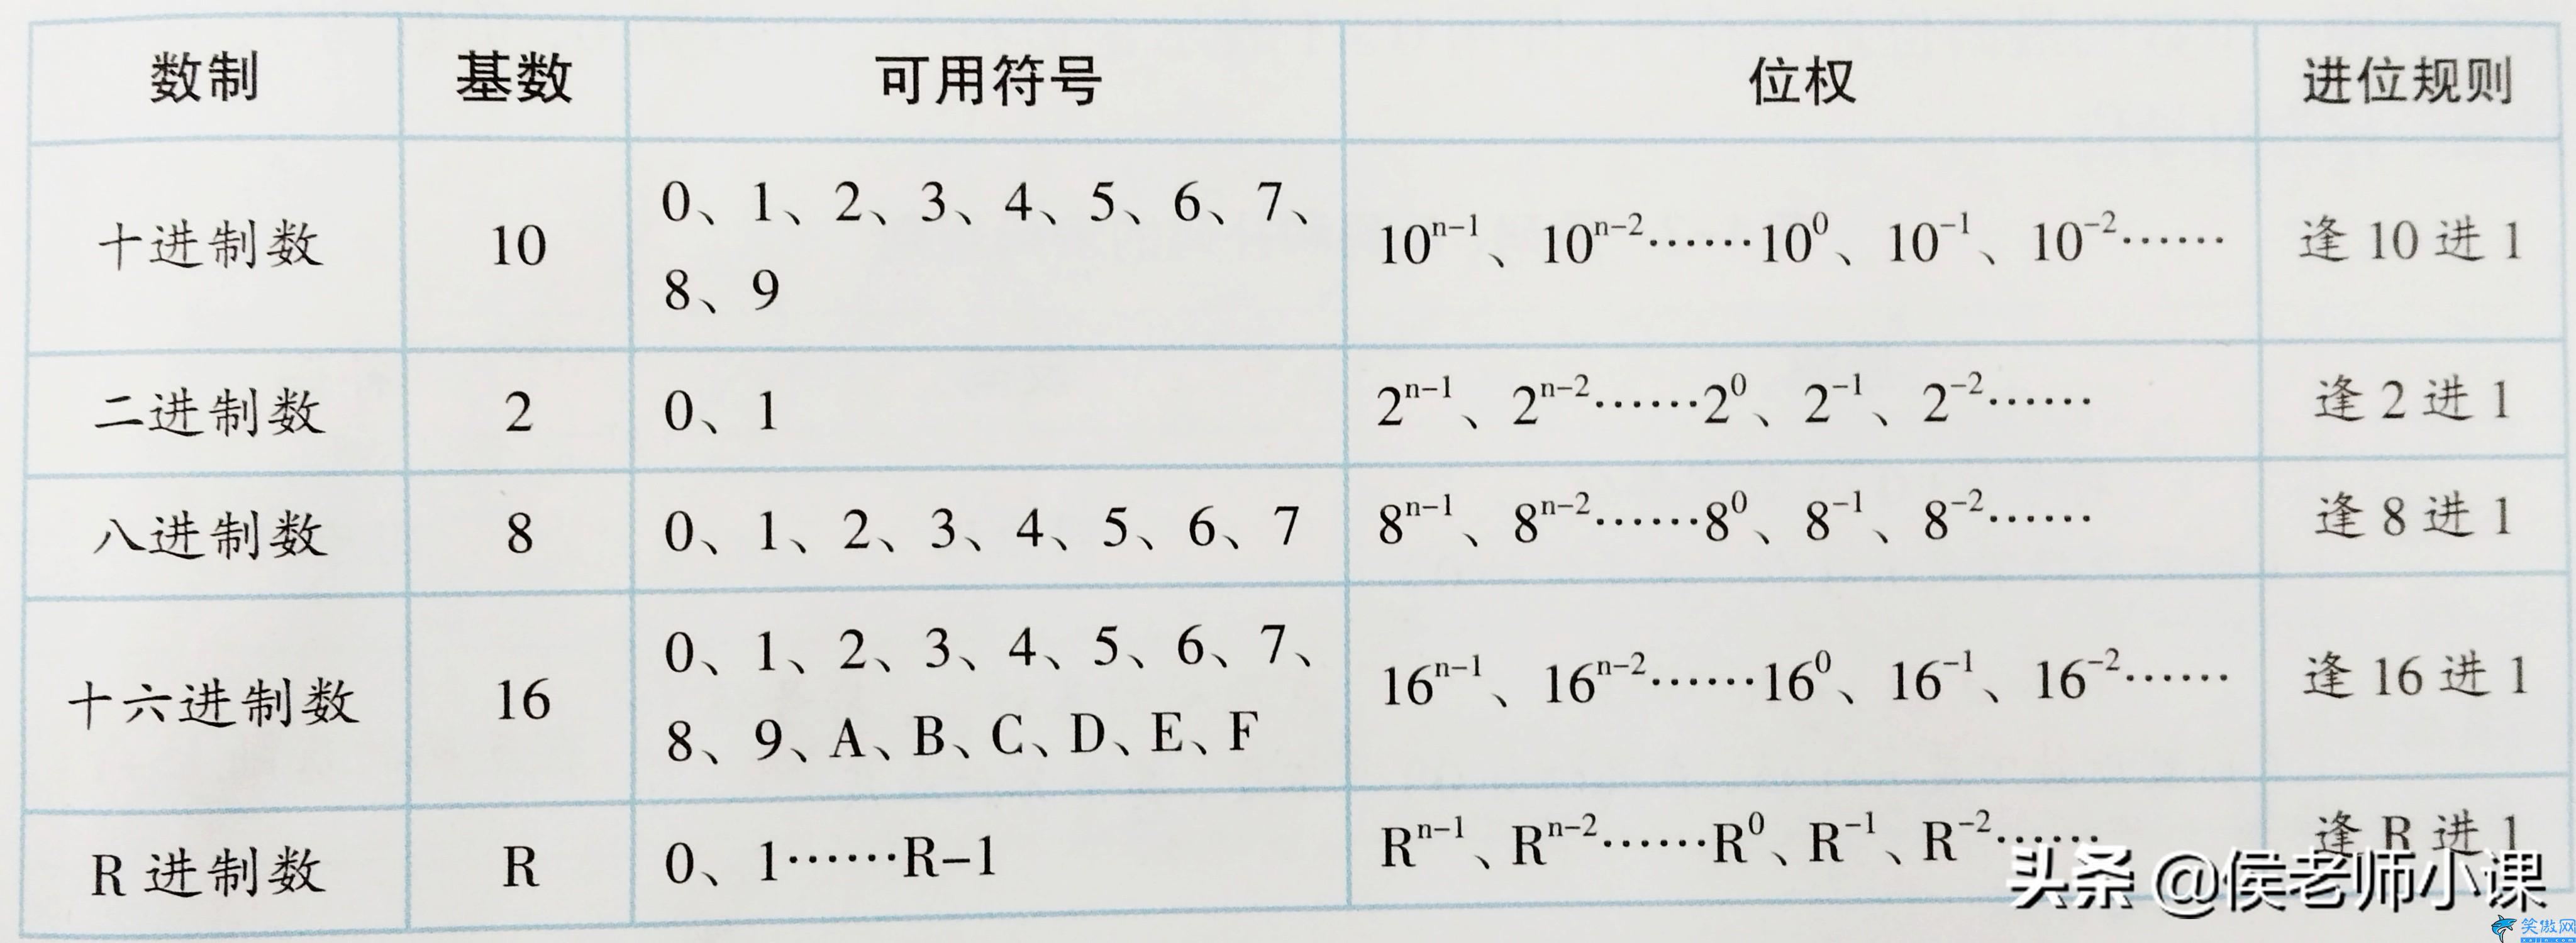 数制 基数 可用符号 位权 进位规则
十进制数 10 0、1、2、3、4、5、6、7、
8、9 10ⁿ⁻¹、10ⁿ⁻²……10⁰、10⁻¹、10⁻²…… 逢10进1
二进制数 2 0、1 2ⁿ⁻¹、2ⁿ⁻²……2⁰、2⁻¹、2⁻²…… 逢2进1
八进制数 8 0、1、2、3、4、5、6、7 8ⁿ⁻¹、8ⁿ⁻²……8⁰、8⁻¹、8⁻²…… 逢8进1
十六进制数 16 0、1、2、3、4、5、6、7、
8、9、A、B、C、D、E、F 16ⁿ⁻¹、16ⁿ⁻²……16⁰、16⁻¹、16⁻²…… 逢16进1
R进制数 R 0、1……R-1 Rⁿ⁻¹、Rⁿ⁻²……R⁰、R⁻¹、R⁻²…… 逢R进1
头条 @侯老师小课
笑傲网